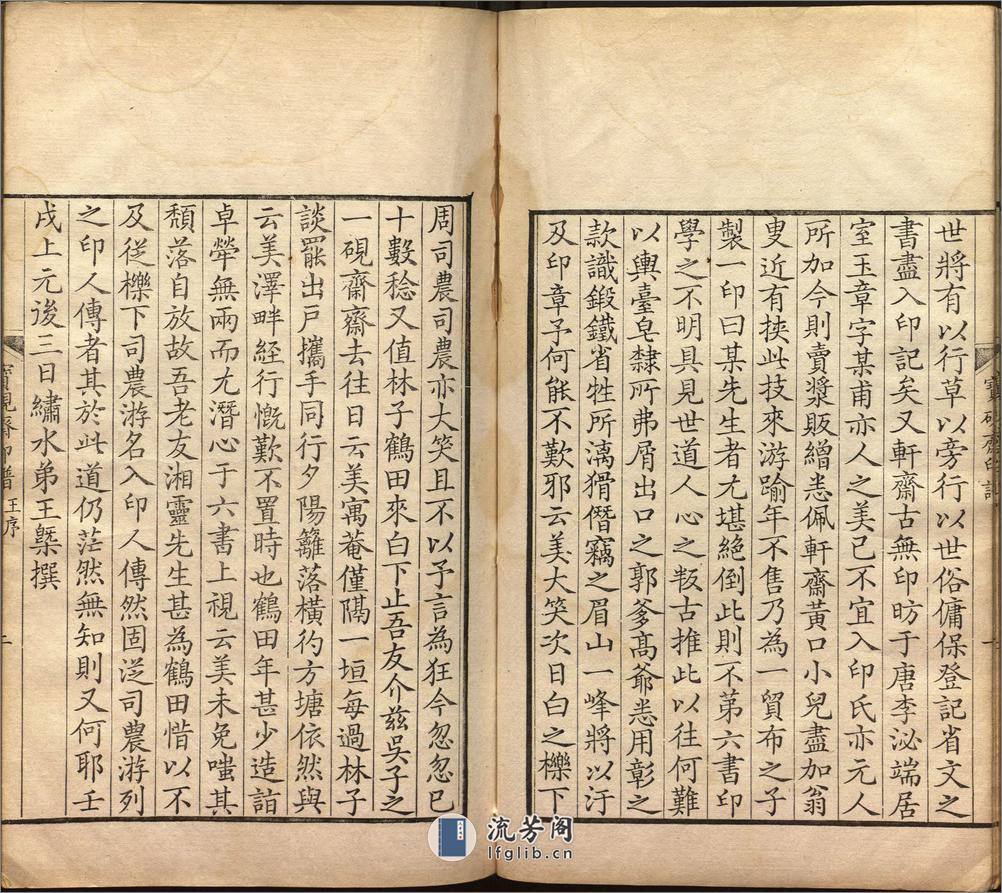 世將有以行草以旁行以世俗傭保登記省文之
書盡入印記矣又軒齋古無印昉于唐李泌端居
室玉章字某甫亦人之美已不宜入印氏亦元人
所加今則賣漿販繒悉佩軒齋黃口小兒盡加翁
叟近有挾此技來游踰年不售乃為一貿布之子
製一印曰某先生者尤堪絕倒此則不第六書印
學之不明具見世道人心之叛古推此以往何難
以輿臺皂隸所弗屑出口之郭爹高爺悉用彰之
款識鍛鐵省牲所漓猾僭竊之眉山一峰將以汙
及印章予何能不歎邪云美大笑次日白之櫟下
寶硯齋印譜
周司農司農亦大笑且不以予言為狂今忽忽已
十數稔又值林子鶴田來白下止吾友介茲吳子之
一硯齋齋去往日云美寓菴僅隔一垣每過林子
談罷出戶攜手同行夕陽籬落橫彴方塘依然與
云美澤畔經行慨歎不置時也鶴田年甚少造詣
卓犖無兩而尤潛心于六書上視云美未免嗤其
頹落自放故吾老友湘靈先生甚為鶴田惜以不
及從櫟下司農游名入印人傳然固泛司農游列
之印人傳者其於此道仍茫然無知則又何耶壬
戌上元後三日繡水弟王槩撰
寶硯齋印譜 王序 二
流芳阁
lfglib.cn